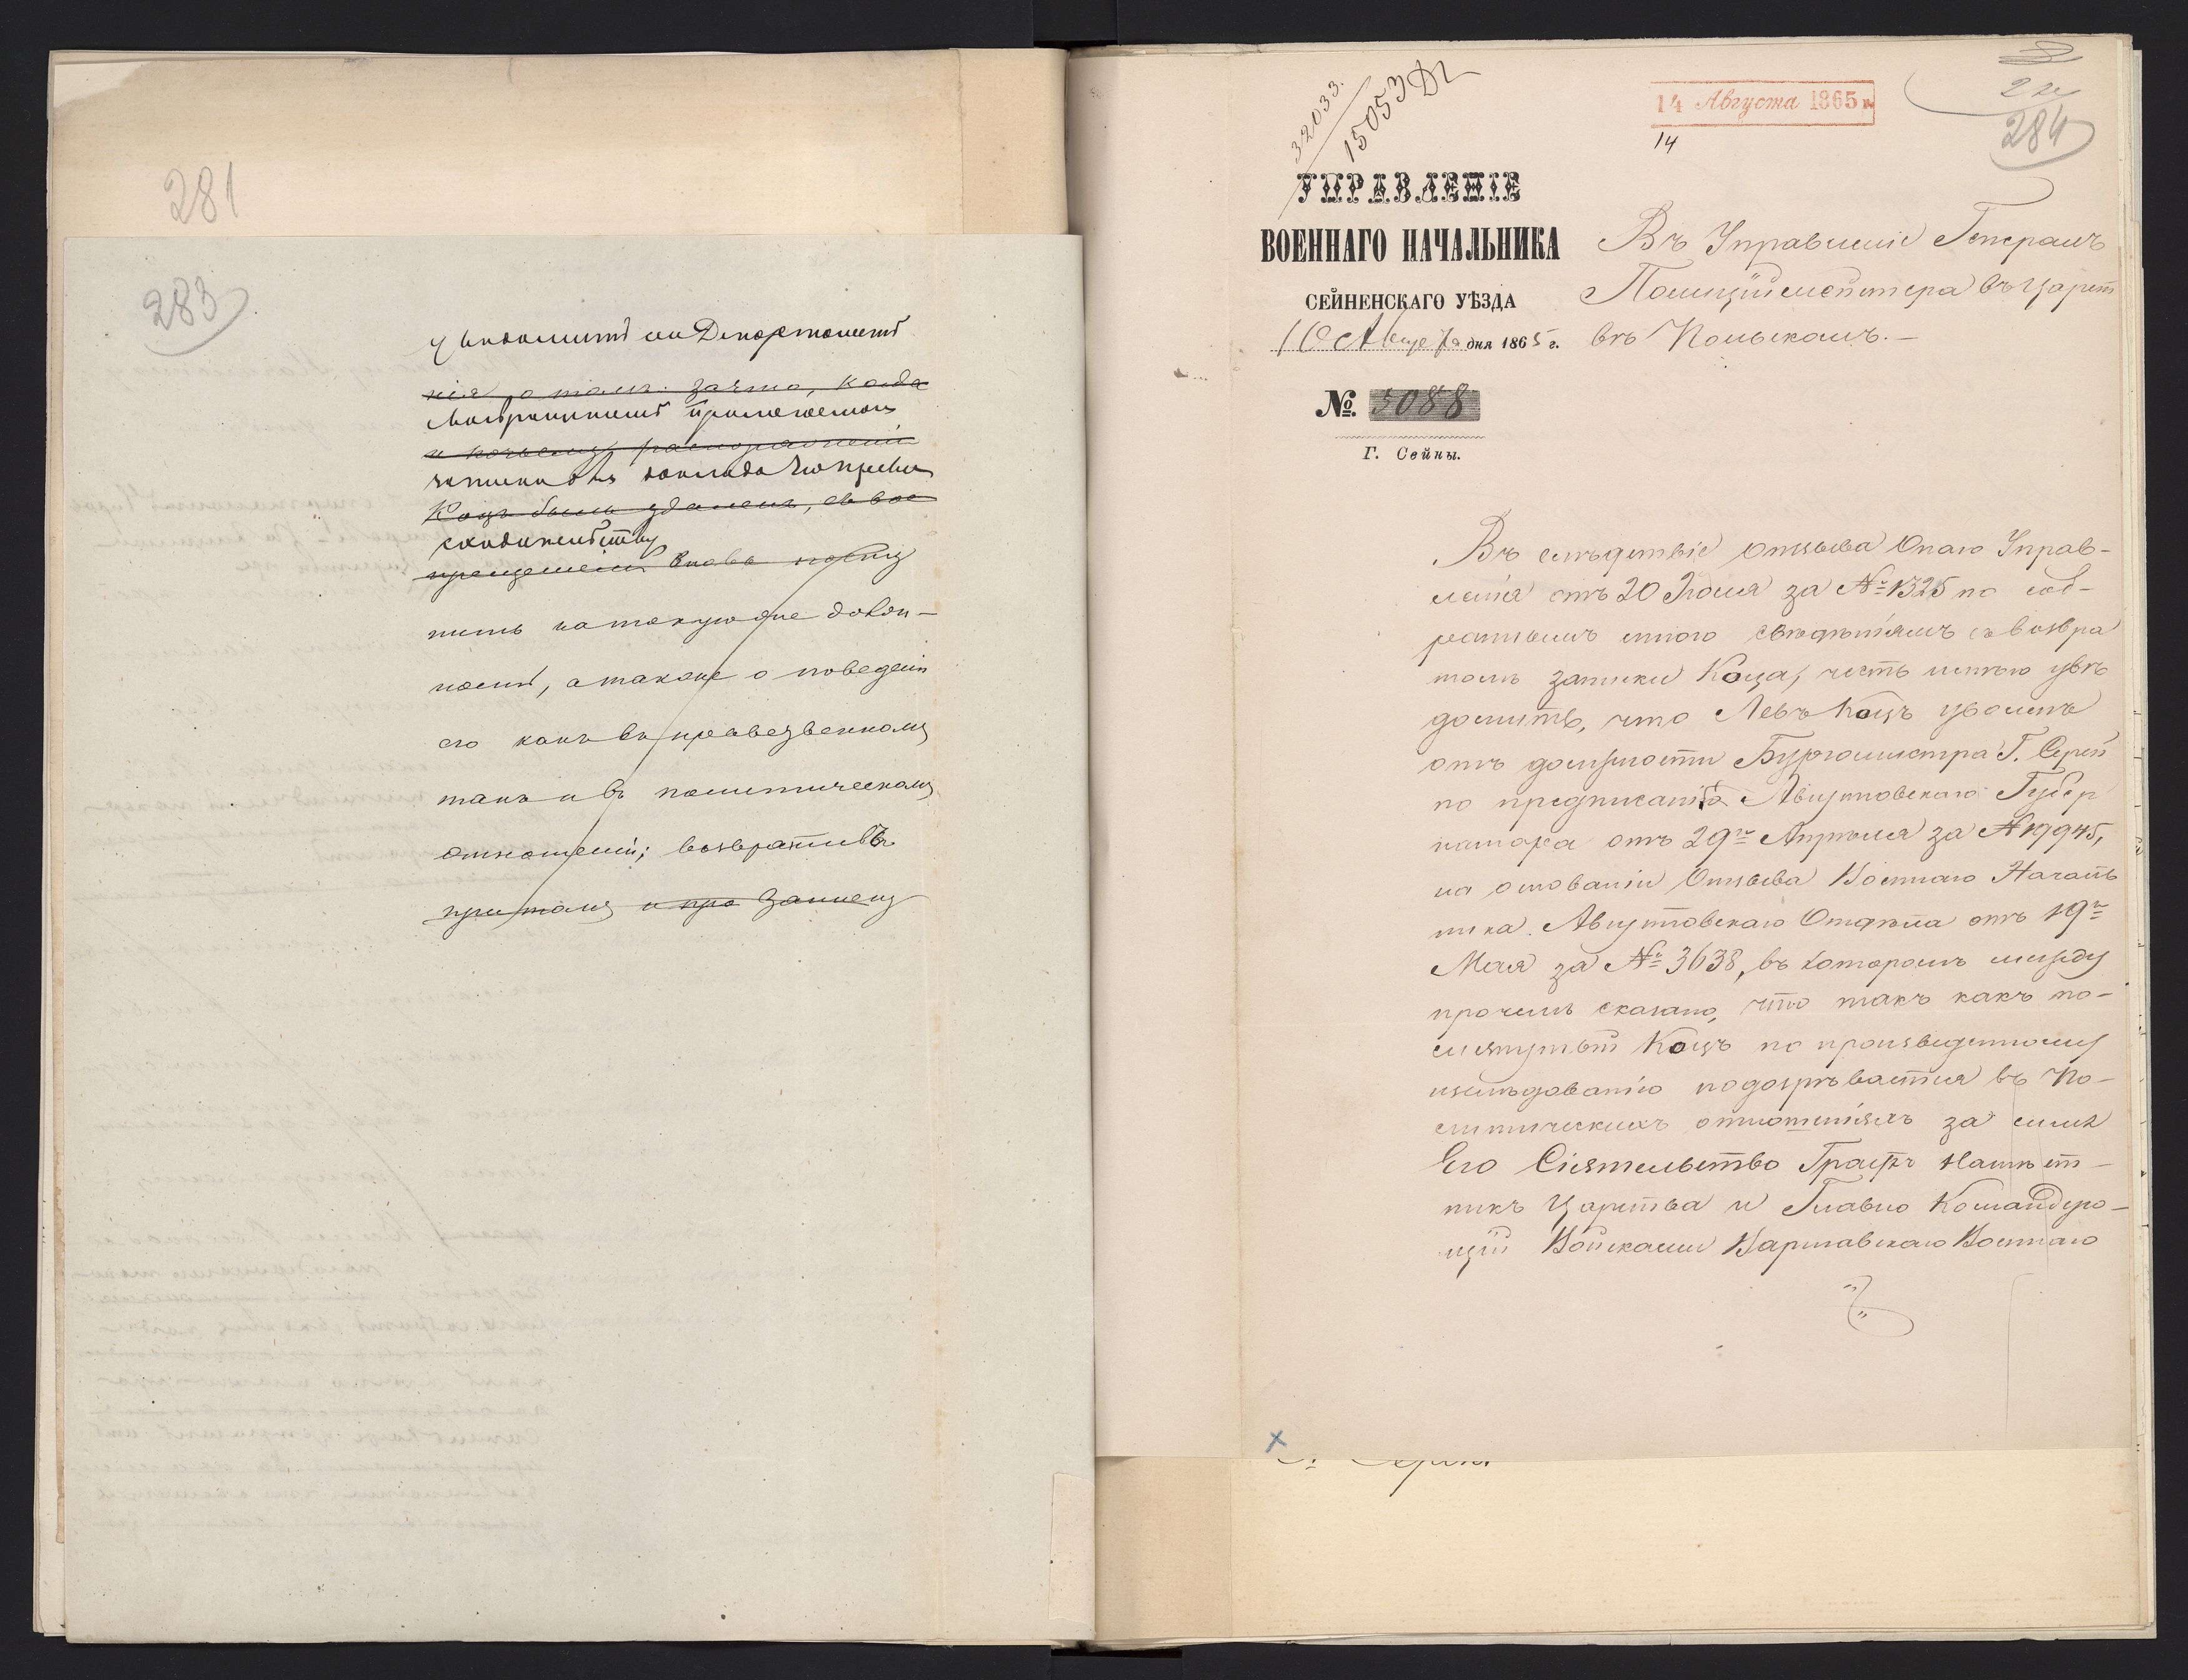 281
283
Департаментъ
нія о томъ: за что, когда
и по чьему распоряженію
записки для доклада Его Превосходительству
Коцъ былъ удаленъ, съ вос
прещеніемъ вновь
пить на такую же долж-
ность, а также о поведеніи
его какъ въ нравственномъ
такъ и въ политическомъ
отношеніи; возвративъ
при томъ и про записку
32033.
1505
14 Августа 1865 г.
14
284
УПРАВЛЕНІЕ
ВОЕННАГО НАЧАЛЬНИКА
СЕЙНЕНСКАГО УѢЗДА
10 Августа дня 1865 г.
№ 5088
Г. Сейны.
Въ Управленіе Генералъ
Полицiймейстера въ Царст
въ Польскомъ.—
Въ слѣдствіе отзыва Онаго Управ-
ленія отъ 20 Іюля за № 1325 по соб-
раннымъ мною свѣдѣніямъ съ возвра
томъ записки Коца, честь имѣю увѣ
домить, что Левъ Коцъ уволенъ
отъ должности Бургомистра Г. Серей
по предписанію Августовскаго Губер
натора отъ 29го Апрѣля за № 19945,
на основаніи Отзыва Военнаго Началь
ника Августовскаго Отдѣла отъ 19го
Мая за № 3638, въ которомъ между
прочимъ сказано, что такъ какъ по-
мянутый Коцъ по произведенному
изслѣдованію подозрѣвается въ По-
литическихъ отношеніяхъ за симъ
Его Сіятельство Графъ Намѣст-
никъ Царства и Главно Командую-
щій Войсками Варшавскаго Военнаго